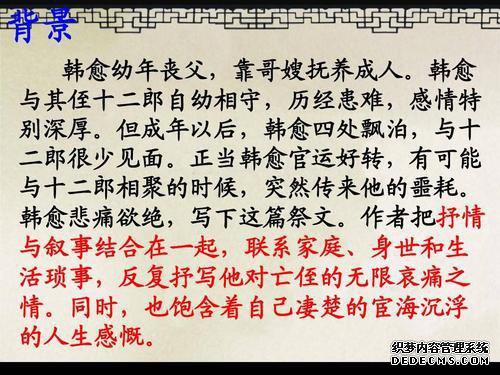 背景
韩愈幼年丧父，靠哥嫂抚养成人。韩愈
与其侄十二郎自幼相守，历经患难，感情特
别深厚。但成年以后，韩愈四处飘泊，与十
二郎很少见面。正当韩愈官运好转，有可能
与十二郎相聚的时候，突然传来他的噩耗。
韩愈悲痛欲绝，写下这篇祭文。作者把抒情
与叙事结合在一起，联系家庭、身世和生
活琐事，反复抒写他对亡侄的无限哀痛之
情。同时，也饱含着自己凄楚的宦海沉浮
的人生感慨。
织梦内容管理系统
DEDECMS.COM